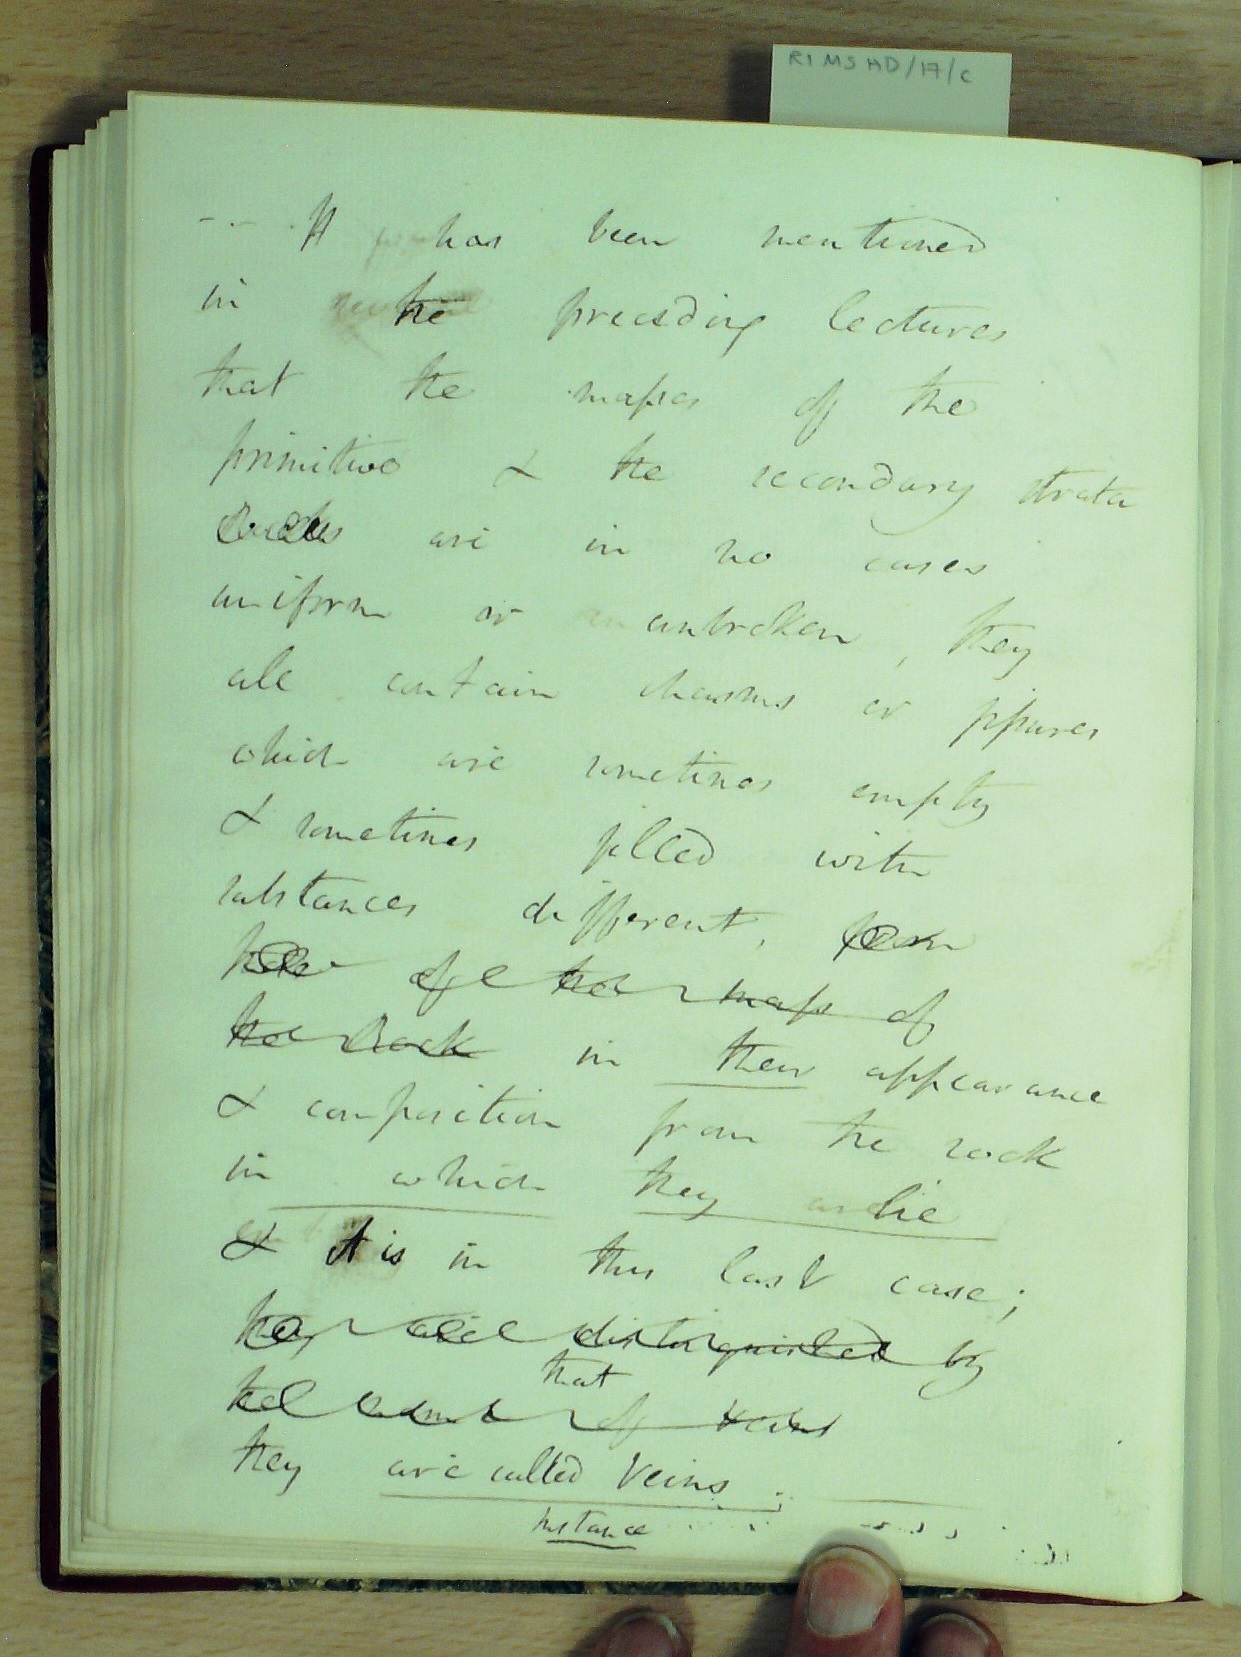 RI MS HD/17/C
-- . It has been mentioned
in the preceding lectures
that the masses of the
primitive & the secondary strata
Rocks are in no cases
uniform or unbroken, they
all contain chasms or fissures
which are sometimes empty
& sometimes filled with
substances different, from
those of the mass of
the Rock in their appearance
& composition from the rock
in which they lie
& it is in this last case;
they are distinguished by
that
the name of veins
they are called Veins.
Instance